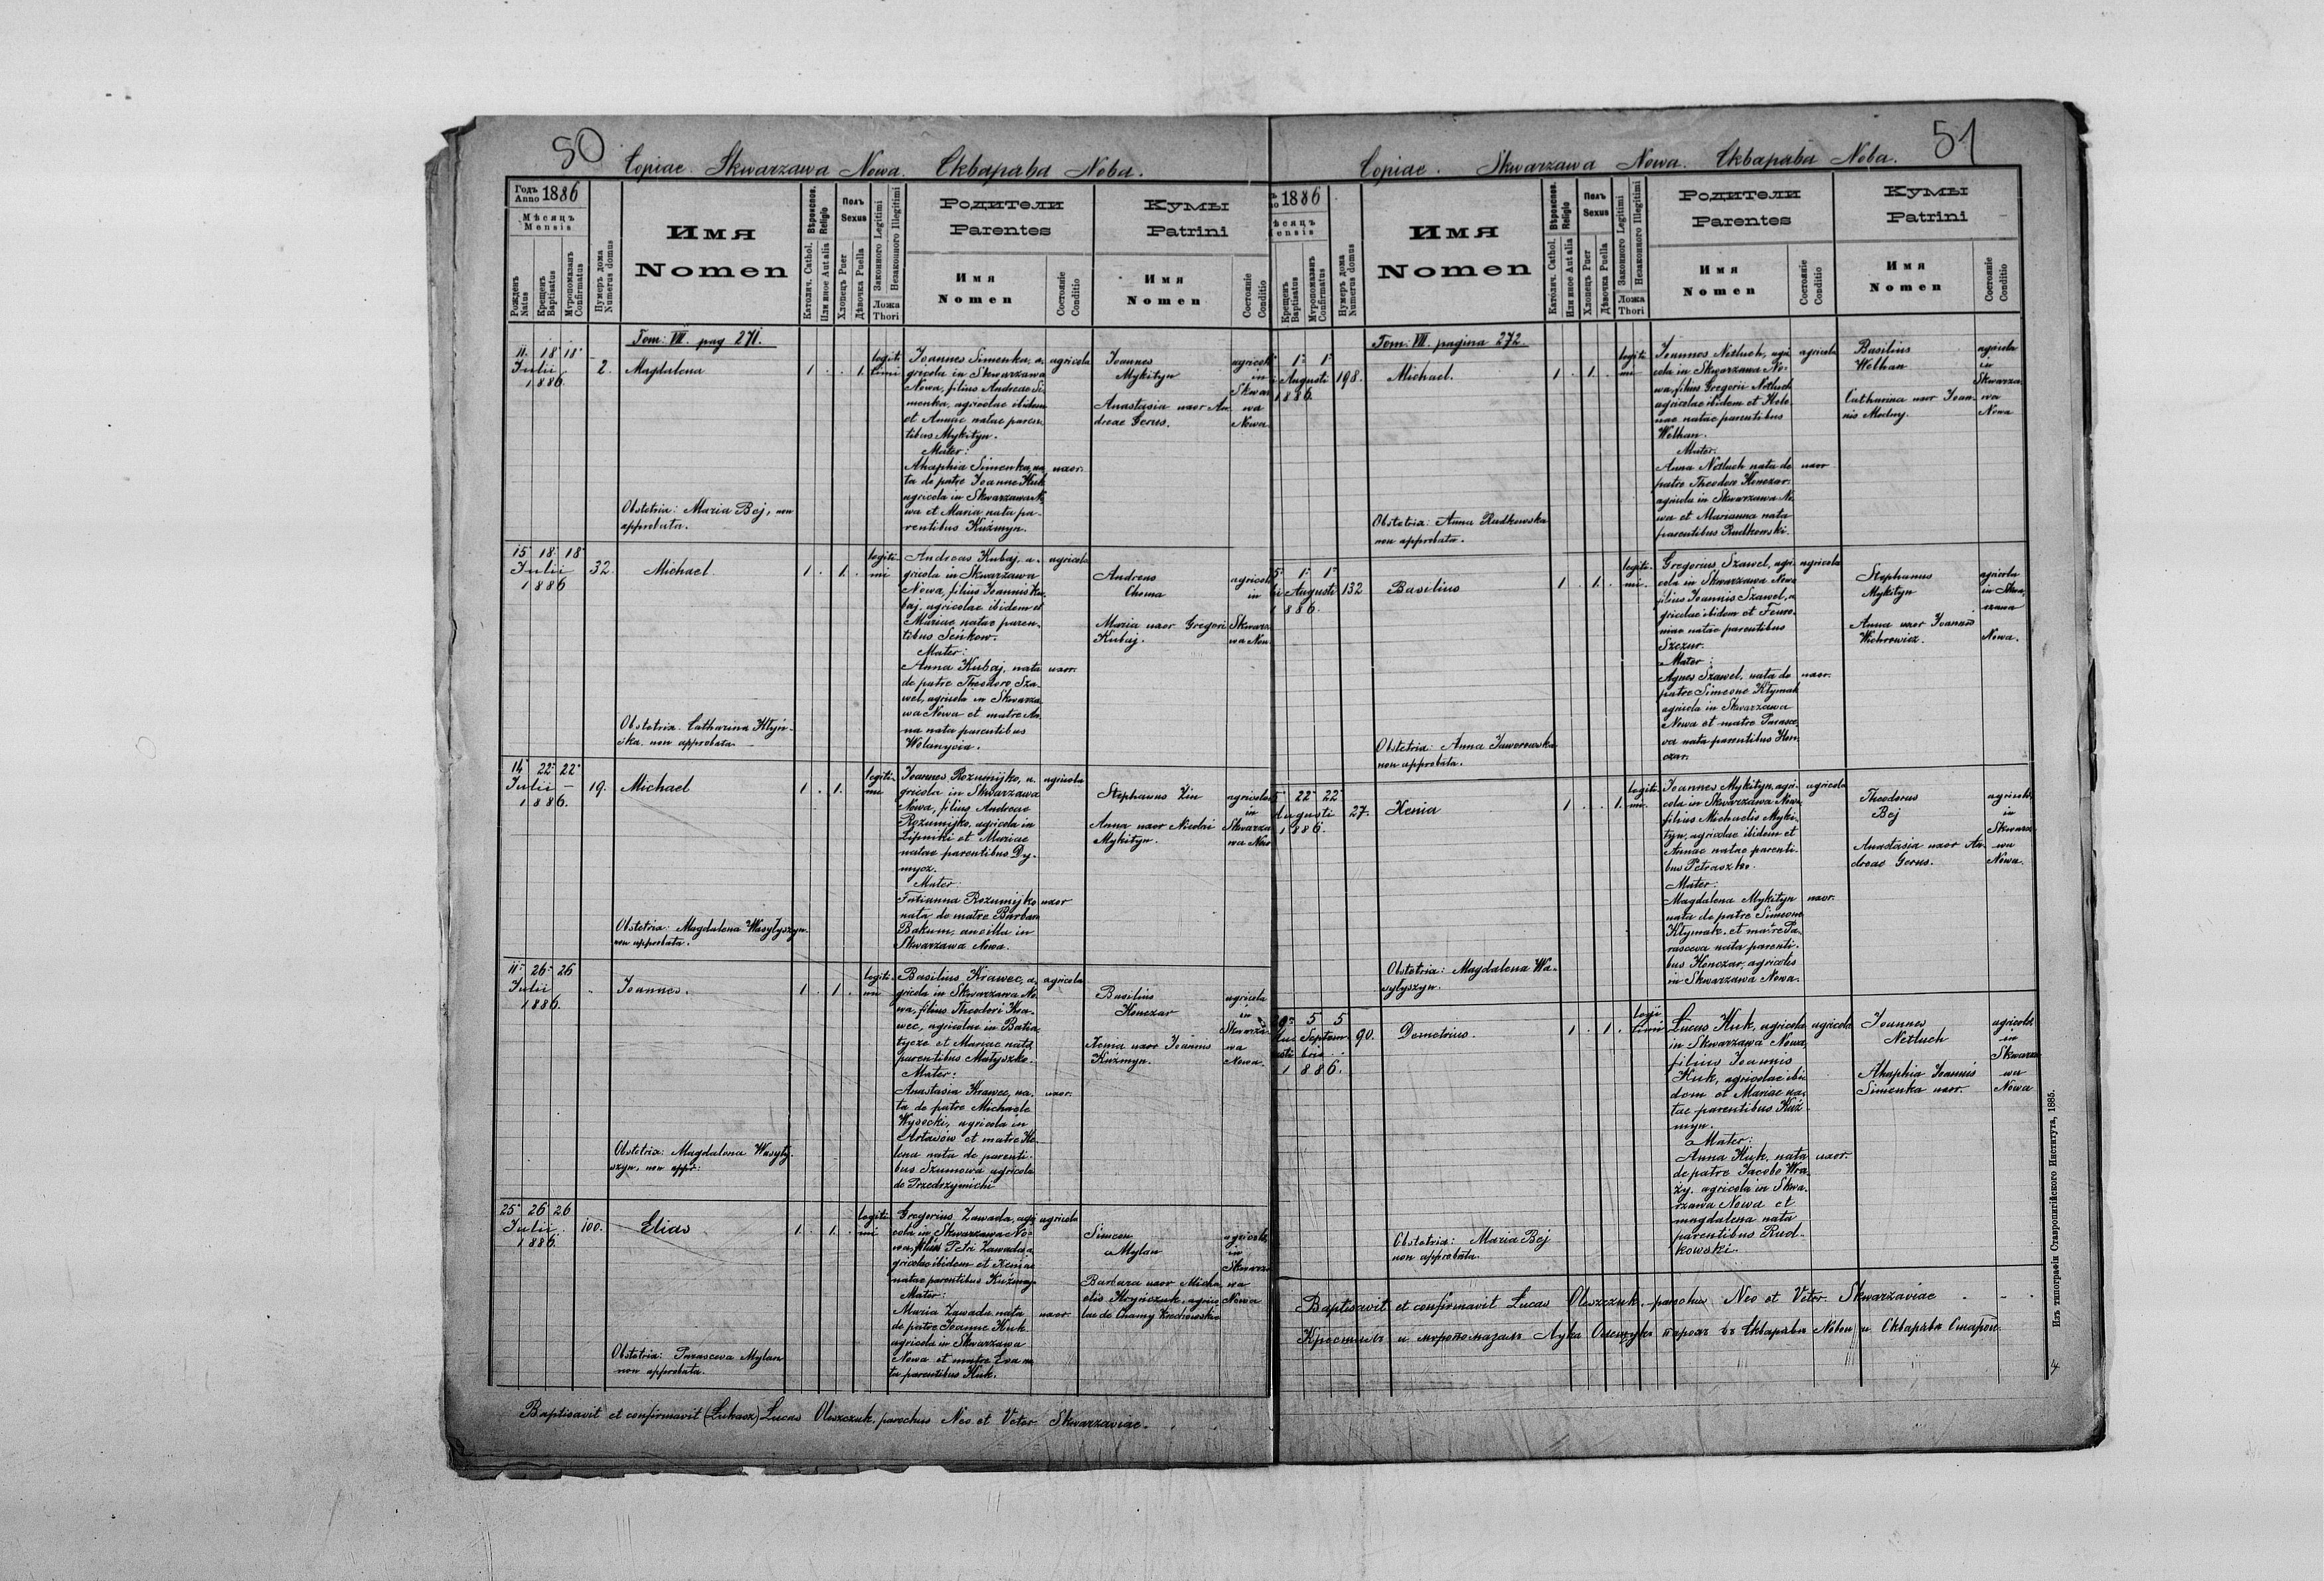 50
Copiae Skwarzawa Nowa. Скварѣва Нова.
Годъ Anno 1886
Мѣсяцъ Mensis
Рожденъ Natus
Крещенъ Baptisatus
Муропомазанъ Confirmatus
Нумеръ дома Numerus domus
Имя Nomen
Вѣроиспов. Religio
Католич. Cathol.
Или иное Aut alia
Полъ Sexus
Хлопецъ Puer
Дѣвочка Puella
Законного Legitimi
Незаконного Illegitimi
Ложа Thori
Родители Parentes
Имя Nomen
Состояніе Conditio
Кумы Patrini
Имя Nomen
Состояніе Conditio
Tom: VII. pag 271.
11. 18 18
Julii
1886.
2.
Magdalena
1 . . 1
legiti-
timi
Joannes Simenka, a-
gricola in Skwarzawa
Nowa, filius Andreae Si-
menka, agricolae ibidem
et Annae natae paren-
tibus Mykityn.
Mater:
Ahaphia Simenka, na-
ta de patre Joanne Kuk
agricola in Skwarzawa No-
wa et Maria nata pa-
rentibus Kuźmyn.
agricola
uxor.
Joannes
Mykityn
Anastasia uxor An-
dreae Gerus.
agricola
in
Skwar
wa
Nowa
Obstetrix: Maria Bej, non
approbata.
15 18 18
Julii
1886
32.
Michael
1 . 1 .
legiti-
mi
Andreas Kubaj, a-
gricola in Skwarzawa
Nowa, filius Joannis Ku-
baj, agricolae ibidem et
Mariae natae paren-
tibus Seńkow.
Mater:
Anna Kubaj, nata
de patre Theodoro Sza-
wel, agricola in Skwarza-
wa Nowa et matre An-
na nata parentibus
Welanycia.
agricola
uxor.
Andreas
Choma
Maria uxor Gregori
Kubaj.
agricola
in
Skwarza
wa Now
Obstetrix. Catharina Kłyń-
ska non approbata
14 22 22
Julii
1886.
19.
Michael
1 . 1.
legiti-
mi
Joannes Rozumijko, a-
gricola in Skwarzawa
Nowa, filius Andreae
Rozumijko, agricola in
Lipniki et Mariae
natae parentibus Dy-
mycz.
Mater:
Tatianna Rozumijko
nata de matre Barbara
Bakum, ancilla in
Skwarzawa Nowa.
agricola
uxor
Stephanus Zin
Anna uxor Nicolai
Mykityn.
agricola
in
Skwarza
wa Now
Obstetrix: Magdalena Wasylyszyn
non approbata.
11 26 26
Julii
1886.
Joannes.
1 . 1 .
legiti-
mi
Basilius Krawec, a-
gricola in Skwarzawa No-
wa, filius Theodori Kra-
wec, agricolae in Batia-
tycze et Mariae nata
parentibus Matyszko.
Mater:
Anastasia Krawec, na-
ta de patre Michaele
Wysocki, agricola in
Artasów et matre He-
lena nata de parenti-
bus Szumowa agricola
de Przedrzymichi
agricola
uxor.
Basilius
Henczar
Xenia uxor Joannis
Kuźmyn.
agricola
in
Skwarza-
wa
Nowa.
Obstetrix: Magdalena Wasyly-
szyn, non appr:
25 26 26
Julii
1886.
100.
Elias
1. . 1. .
legiti-
mi
Gregorius Zawada, agri-
cola in Skwarzawa No-
wa, filius Petri Zawada a-
gricolae ibidem et Xeniae
natae parentibus Kuźmyn
Mater:
Maria Zawada nata
de patre Joanne Kuk
agricola in Skwarzawa
Nowa et matre Eva na-
ta parentibus Kuk.
agricola
uxor
Simeon
Mylan
Barbara uxor Micha-
elis
agricola
in
Skwarza
wa
Nowa
Obstetrix: Parasceva Mylan
non approbata.
Baptisavit et confirmavit (Łukasz) Lucas Oleszczuk, parochus Neo et Veter Skwarzaviae.
51
Copiae. Skwarzawa Nowa. Скварѣва Нова.
1886
Мѣсяцъ Mensis
Крещенъ Baptisatus
Муропомазанъ Confirmatus
Нумеръ дома Numerus domus
Имя Nomen
Вѣроиспов. Religio
Католич. Cathol.
Или иное Aut alia
Полъ Sexus
Хлопецъ Puer
Дѣвочка Puella
Законного Legitimi
Незаконного Illegitimi
Ложа Thori
Родители Parentes
Имя Nomen
Состояніе Conditio
Кумы Patrini
Имя Nomen
Состояніе Conditio
Tom: VII. pagina 272
1 1
Augusti
1886
198.
Michael.
1 . 1. .
legiti-
mi
Joannes Netluch, agri-
cola in Skwarzawa No-
wa, filius Gregorii Netluch
agricolae ibidem et Hele-
nae natae parentibus
Welhan.
Mater:
Anna Netluch nata de
patre Theodoro Henczar
agricola in Skwarzawa No-
wa et Marianna nata
parentibus Rudkowski.
agricola
uxor
Basilius
Welhan
Catharina uxor Joan-
nis
agricola
in
Skwarza
wa
Nowa
Obstetrix: Anna Rudkowska
non approbata.
1 1
Augusti
1886.
132
Basilius
1 . 1. .
legiti-
mi.
Gregorius Szawel, agri-
cola in Skwarzawa Nowa
filius Joannis Szawel, a-
gricolae ibidem et Fenro-
niae natae parentibus
Szczur.
Mater:
Agnes Szawel, nata de
patre Simeone Kłymak
agricola in Skwarzawa
Nowa et matre Parasce-
va nata parentibus Hen-
czar.
agricola
uxor.
Stephanus
Mykityn
Anna uxor Joannis
Wichrowicz.
agricola
in Skwa-
rzawa
Nowa.
Obstetrix: Anna Jaworowska
non approbata.
22 22
Augusti
1886.
27.
Xenia
1 . . 1.
legiti-
mi.
Joannes Mykityn, agri-
cola in Skwarzawa Nowa,
filius Michaelis Myki-
tyn, agricolae ibidem et
Annae natae parenti-
bus Petraszko.
Mater:
Magdalena Mykityn
nata de patre Simeone
Kłymak, et matre Pa-
rasceva nata parenti-
bus Henczar, agricolis
in Skwarzawa Nowa.
agricola
uxor.
Theodorus
Bej
Anastasia uxor An-
dreae Gerus.
agricola
in
Skwarza
wa
Nowa.
Obstetrix: Magdalena Wa-
sylyszyn.
5 5
Septem-
bris
1886.
90.
Demetrius.
1 . 1. .
legi-
timi
Lucas Kuk, agricola
in Skwarzawa Nowa,
filius Joannis
Kuk, agricolae ibi-
dem et Mariae na-
tae parentibus Kuź-
myn.
Mater:
Anna Kuk, nata
de patre Jacobo Wra-
ży, agricola in Skwa-
rzawa Nowa et
magdalena nata
parentibus Rud-
kowski.
agricola
uxor.
Joannes
Netluch
Ahaphia Joannis
Simenka uxor.
agricola
in
Skwarza
wa
Nowa
Obstetrix: Maria Bej
non approbata.
Baptisavit et confirmavit Lucas Oleszczuk, parochus Neo et Veter. Skwarzaviae
Крестилъ и муропомазалъ Лука Олещукъ парохъ въ Скварѣвѣ Новой и Скварѣвѣ Старой.
Изъ типографіи Ставропигійского Института, 1885.
4